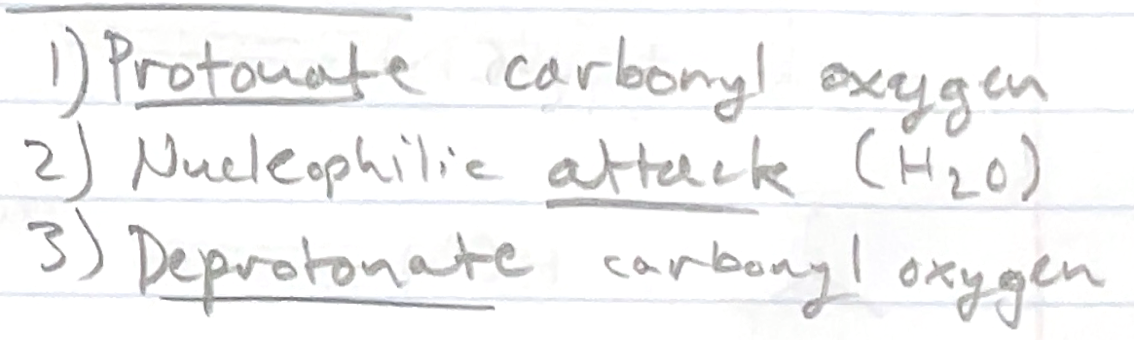 1) Protonate carbonyl oxygen
2) Nucleophilic attack (H₂O)
3) Deprotonate carbonyl oxygen